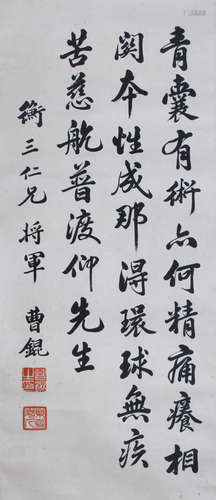 青囊有術亦何精痛癢相
関本性成那得環球無疾
苦慈航普渡仰先生
衡三仁兄将軍
曹錕